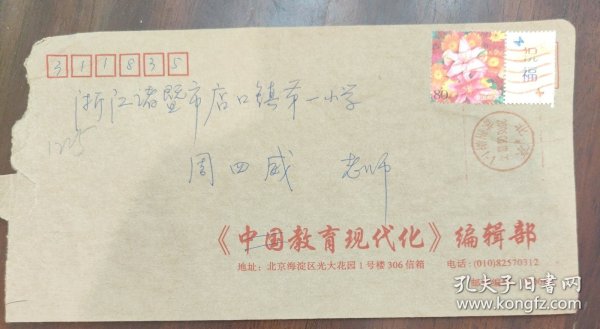 311835
祝福
80
浙江诸暨市店口镇第一小学
周四威 老师
《中国教育现代化》编辑部
地址：北京海淀区光大花园1号楼306信箱 电话：(010)82570312
孔夫子旧书网
www.kongfz.com